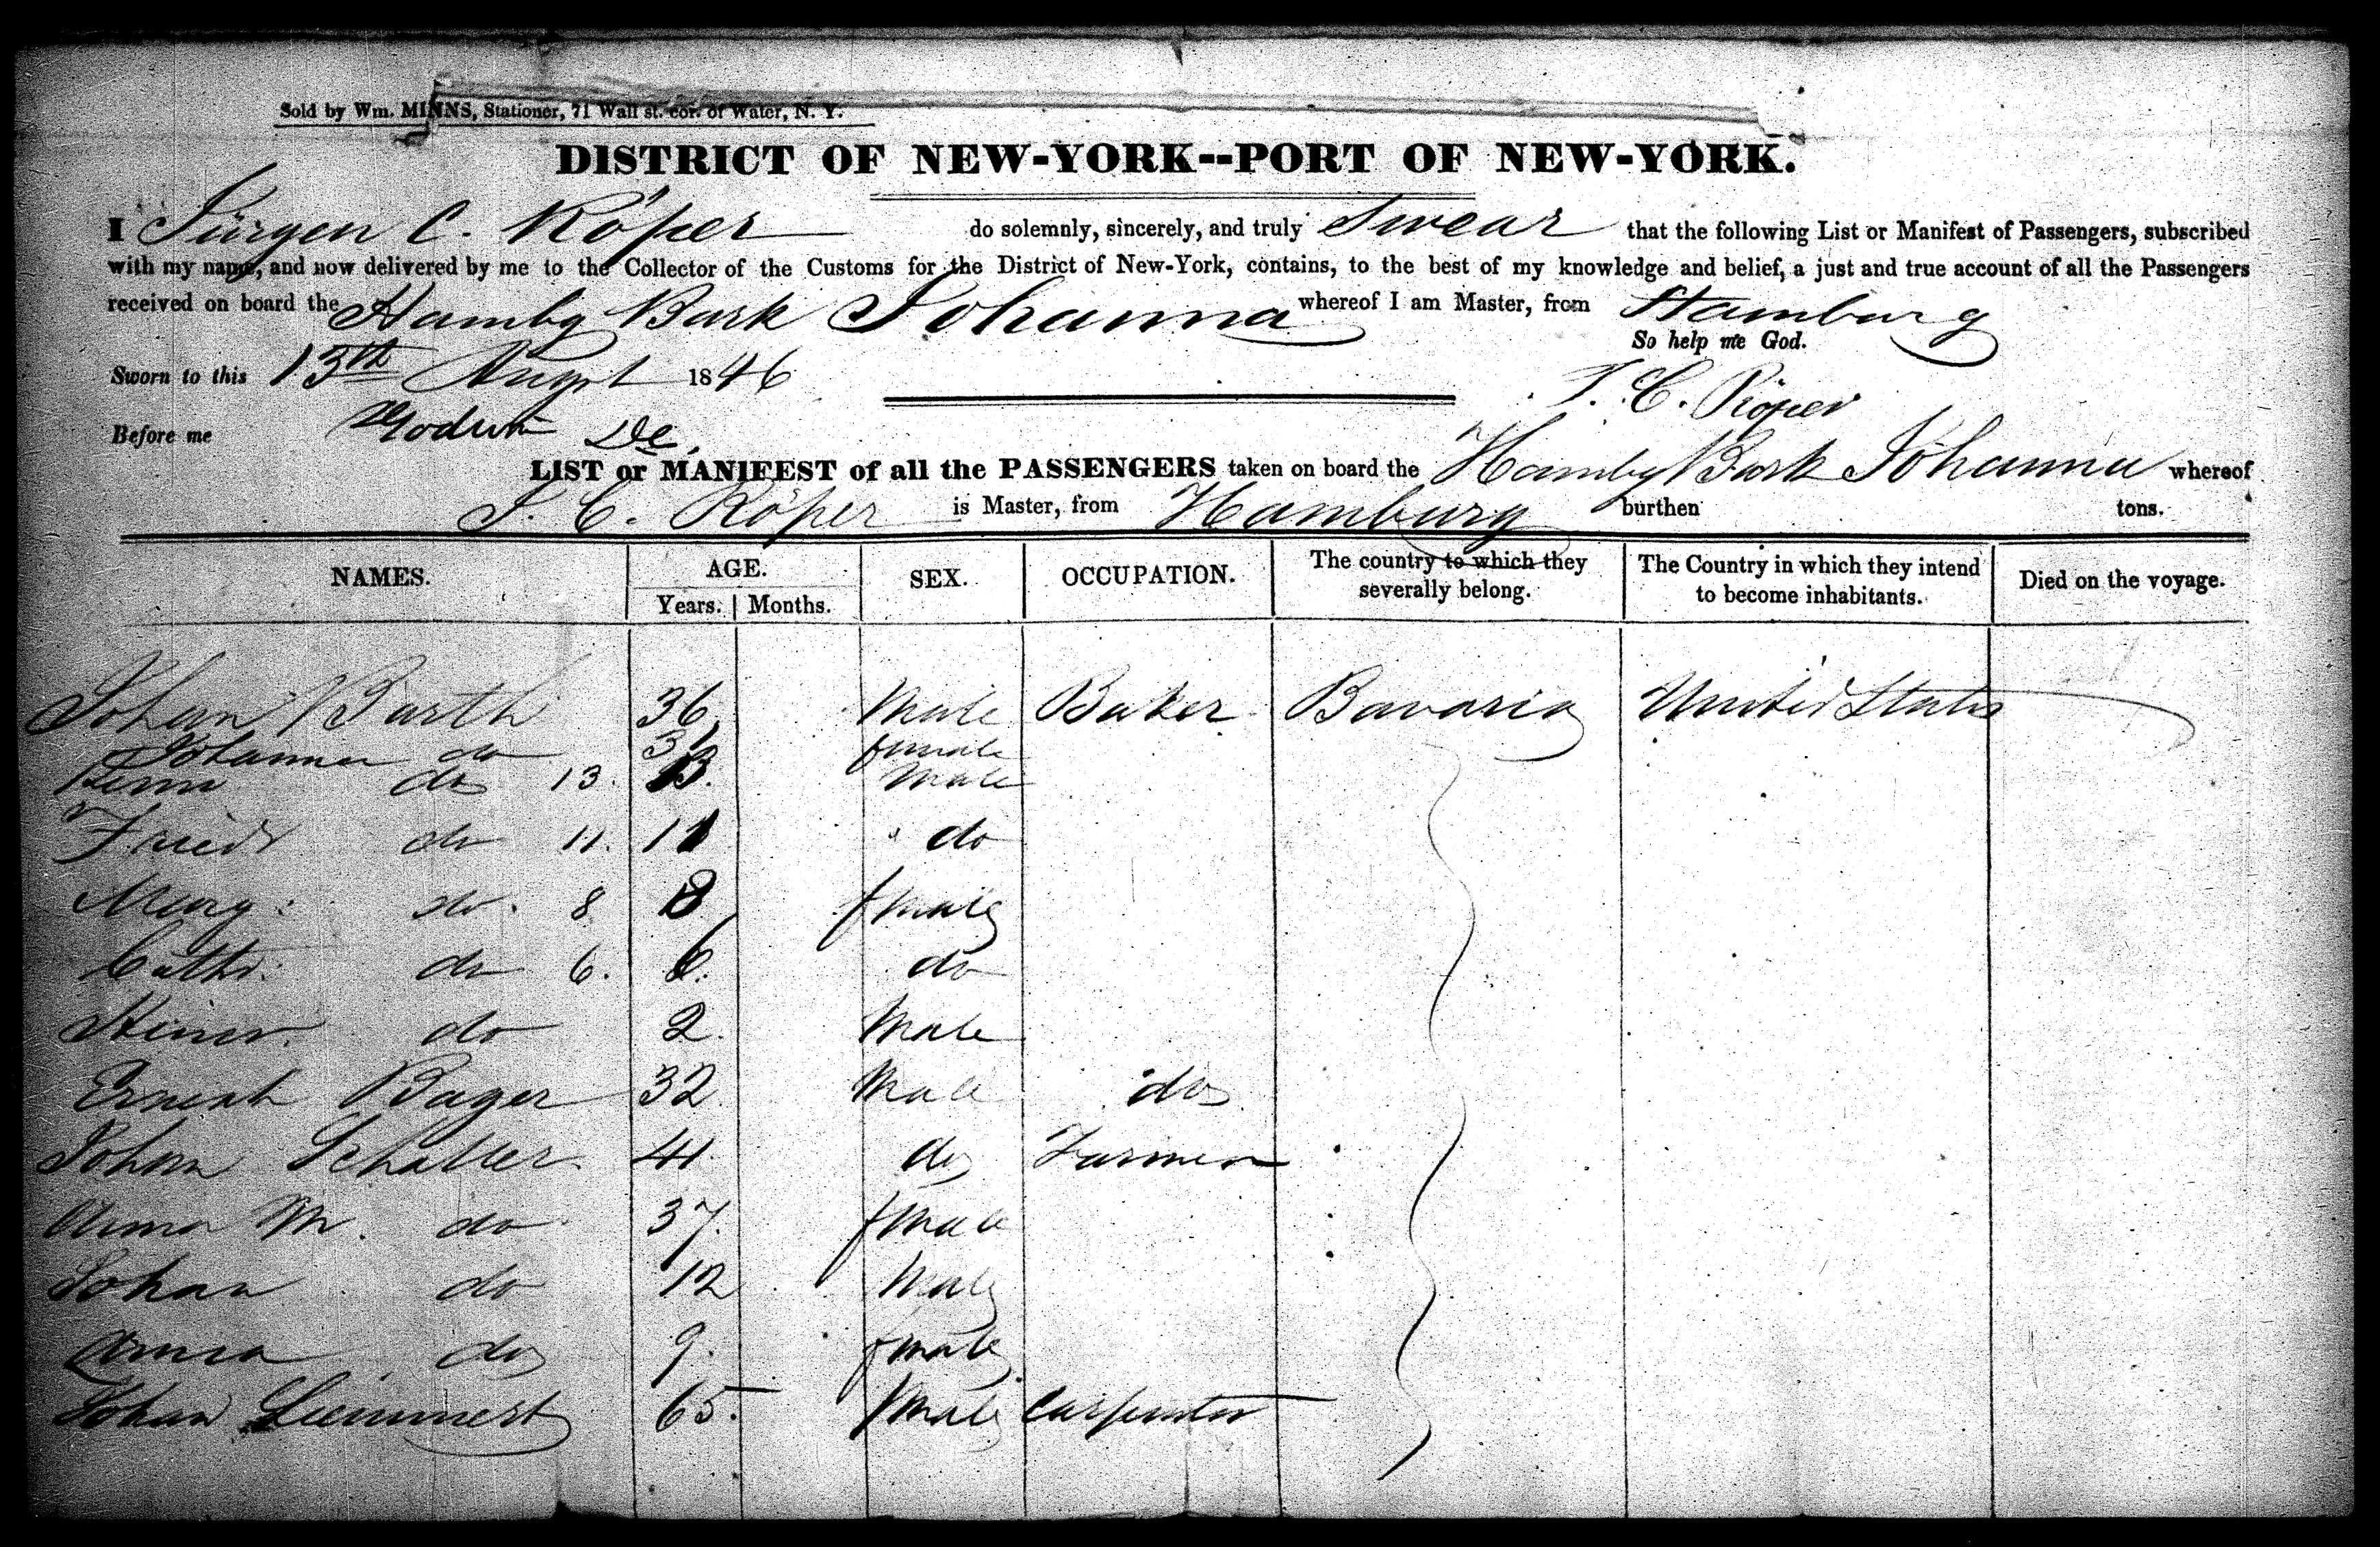 Sold by Wm. MINNS, Stationer, 71 Wall st. cor. of Water, N. Y.
DISTRICT OF NEW-YORK--PORT OF NEW-YORK.
I Jürgen C. Röper do solemnly, sincerely, and truly Swear that the following List or Manifest of Passengers, subscribed
with my name, and now delivered by me to the Collector of the Customs for the District of New-York, contains, to the best of my knowledge and belief, a just and true account of all the Passengers
received on board the Hambg Bark Johanna whereof I am Master, from Hamburg
So help me God.
Sworn to this 13th August 1846
J. C. Röper
Before me
LIST or MANIFEST of all the PASSENGERS taken on board the Hambg Bark Johanna whereof
J. C. Röper is Master, from Hamburg burthen tons.
NAMES. AGE. Years. Months. SEX. OCCUPATION. The country to which they severally belong. The Country in which they intend to become inhabitants. Died on the voyage.
Johan Barth 36 Male Baker Bavaria United States
Johanna do female
do 13. 13. Male
Friedr do 11. 11 do
Marg: do. 8 8 female
Cathr: do 6. 6. do
Heinr. do 2. Male
Ernest Bager 32 Male do
Johan Schaller 41 do Farmer
Anna M. do 37. female
Johan do 12 Male
Anna do 9. female
Johan 65. Male Carpenter